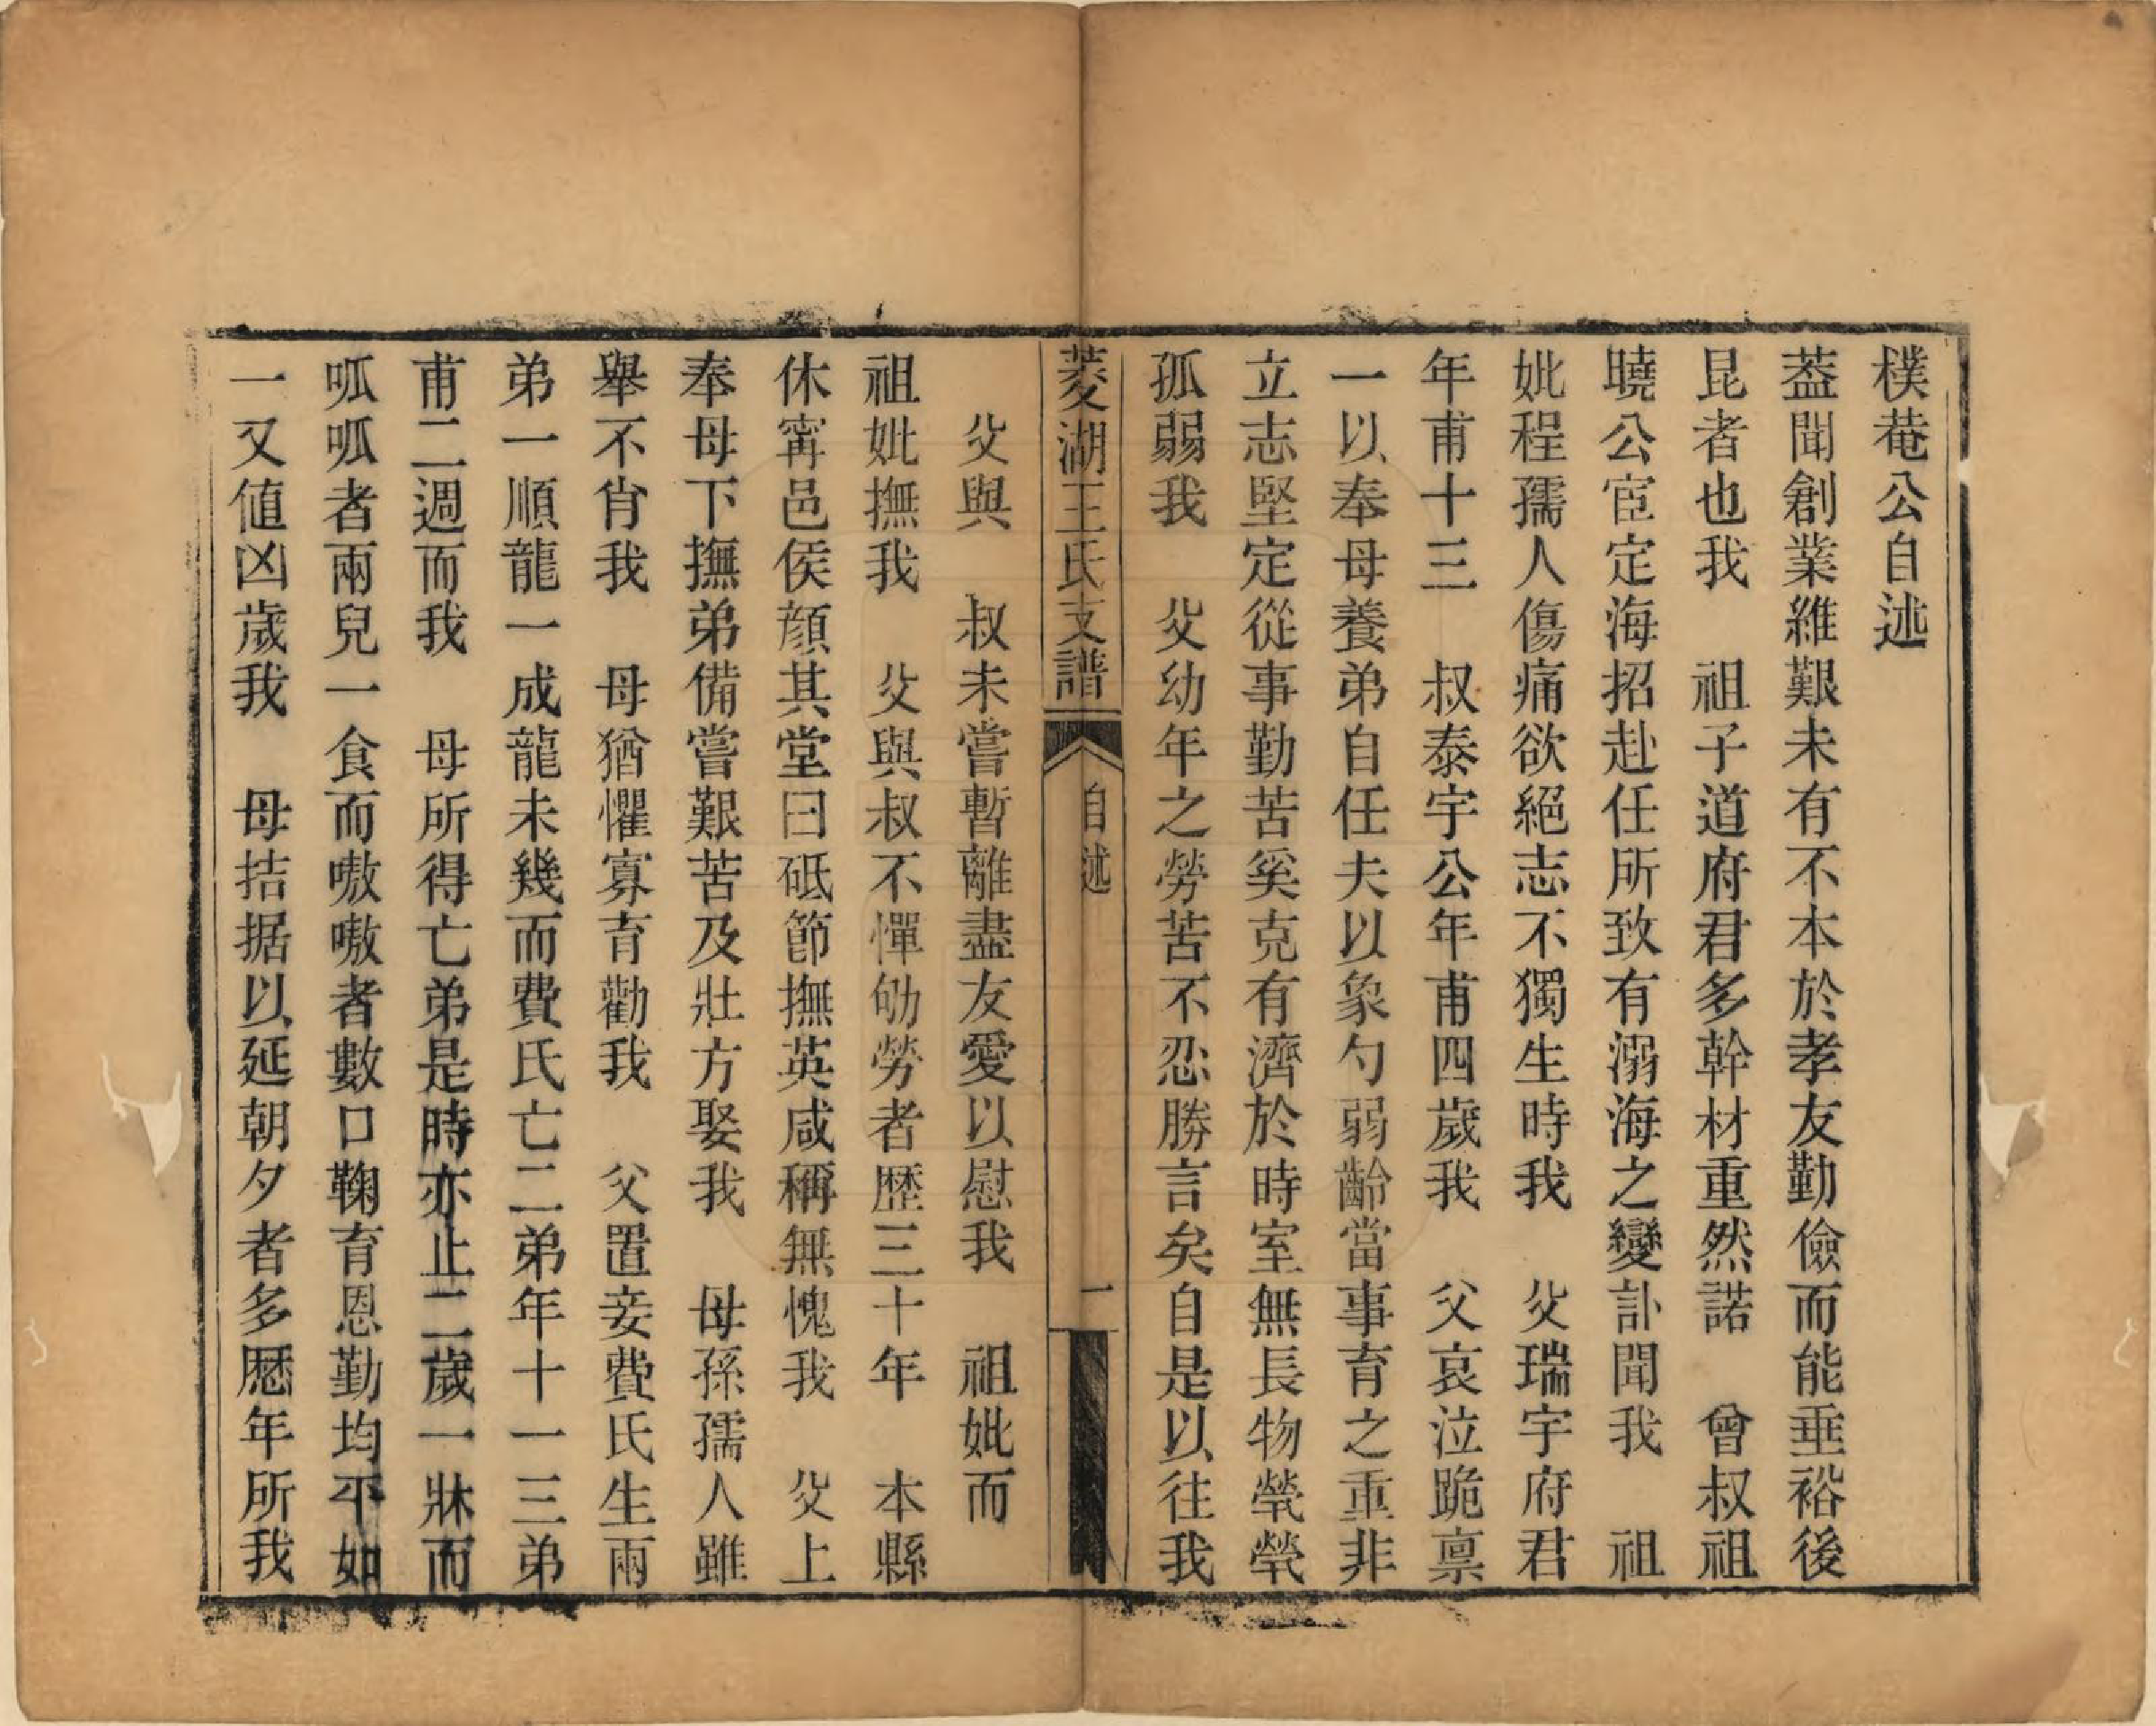 樸菴公自述
葢聞創業維艱未有不本於孝友勤儉而能垂裕後
昆者也我　祖子道府君多幹材重然諾　曾叔祖
曉公宦定海招赴任所致有溺海之變訃聞我　祖
妣程孺人傷痛欲絕志不獨生時我　父瑞宇府君
年甫十三　叔泰宇公年甫四歲我　父哀泣跪禀
一以奉母養弟自任夫以象勺弱齡當事育之重非
立志堅定從事勤苦奚克有濟於時室無長物煢煢
孤弱我　父幼年之勞苦不忍勝言矣自是以往我
菱湖王氏支譜　自述　一
父與　叔未嘗暫離盡友愛以慰我　祖妣而
祖妣撫我　父與叔不憚劬勞者歷三十年　本縣
休寗邑侯顏其堂曰砥節撫英咸稱無愧我　父上
奉母下撫弟備嘗艱苦及壯方娶我　母孫孺人雖
舉不肖我　母猶懼寡育勸我　父置妾費氏生兩
弟一順龍一成龍未幾而費氏亡二弟年十一三弟
甫二週而我　母所得亡弟是時亦止二歲一牀而
呱呱者兩兒一食而嗷嗷者數口鞠育恩勤均平如
一又値凶歲我　母拮据以延朝夕者多歷年所我